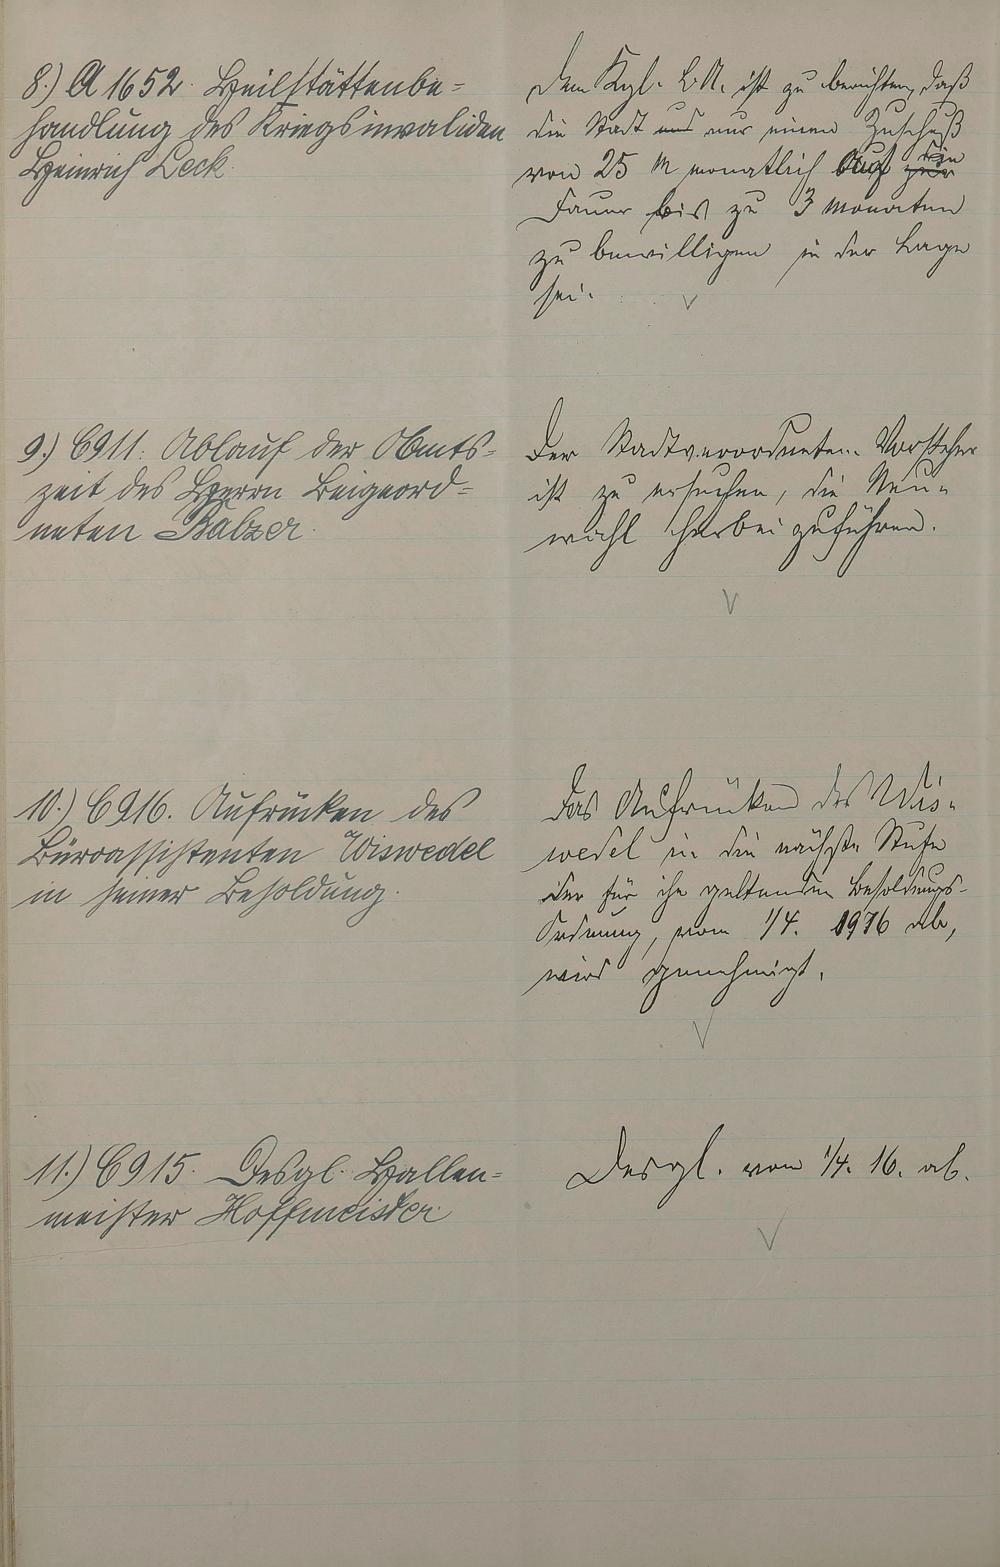 8.) A 1652. Heilstättenbe=
handlung des Kriegsinvaliden
Heinrich Leck.
Dem Kgl. L.A. ist zu berichten, daß
die Stadt und nur einen Zuschuß
von 25 M monatlich auf die
Dauer bis zu 3 Monaten
zu bewilligen in der Lage
sei.
9.) C 911. Ablauf der Amts=
zeit des Herrn Beigeord=
neten Balzer.
Der Stadtverordneten-Vorsteher
ist zu ersuchen, die Neu-
wahl herbeizuführen.
10.) C 916. Aufrücken des
Büroassistenten Wiswedel
in seiner Besoldung.
Das Aufrücken des Wis-
wedel in die nächste Stufe
der für ihn geltenden Besoldungs-
Ordnung, vom 1/4. 1916 ab,
wird genehmigt.
11.) C 915. Desgl. Hallen=
meister Hoffmeister
Desgl. vom 1/4. 16. ab.